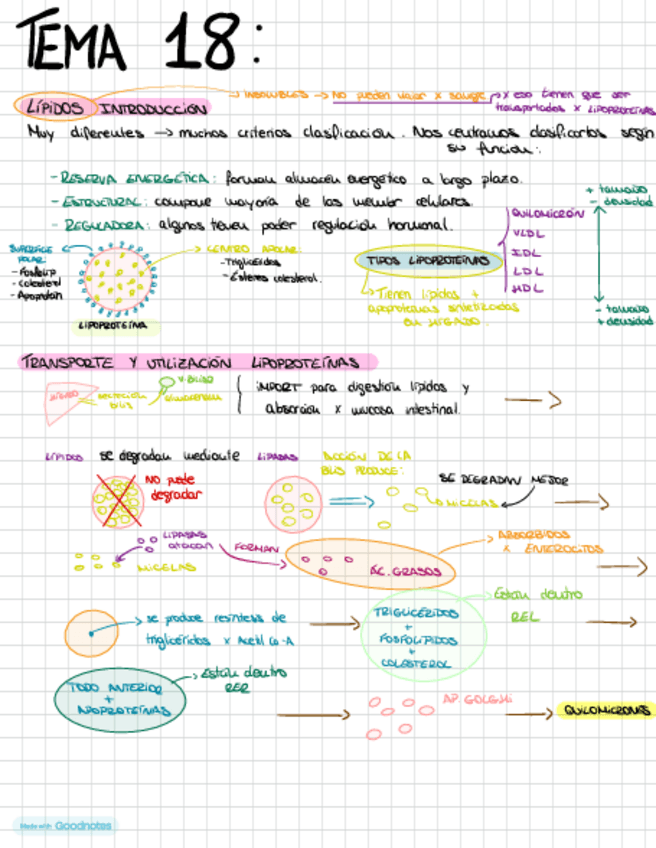 TEMA 18:
LÍPIDOS INTRODUCCIÓN → INSOLUBLES → NO pueden viajar x sangre → x eso tienen que ser
transportados x LIPOPROTEÍNAS
Muy diferentes → muchos criterios clasificación. Nos centramos clasificarlos según
su función:
- RESERVA ENERGÉTICA: forman almacén energético a largo plazo.
- ESTRUCTURAL: compone mayoría de las membr celulares.
- REGULADORA: algunos tienen poder regulación hormonal.
+ tamaño
- densidad
QUILOMICRÓN
VLDL
IDL
LDL
HDL
- tamaño
+ densidad
SUPERFICIE
POLAR
- Fosfolip
- Colesterol
- Apoprotein
CENTRO APOLAR:
- Triglicéridos
- Ésteres colesterol.
LIPOPROTEÍNA
TIPOS LIPOPROTEÍNAS
Tienen lípidos +
apoproteínas sintetizadas
en HÍGADO.
TRANSPORTE Y UTILIZACIÓN LIPOPROTEÍNAS
HÍGADO
secreción
bilis
V. BILIAR
almacenan
IMPORT para digestión lípidos y
absorción x mucosa intestinal.
LÍPIDOS se degradan mediante LIPASAS
ACCIÓN DE LA
BILIS PRODUCE:
NO puede
degradar
SE DEGRADAN MEJOR
MICELAS
LIPASAS
atacan
MICELAS
FORMAN
ÁC. GRASOS
ABSORBIDOS
x ENTEROCITOS
se produce resíntesis de
triglicéridos x Acetil Co-A
TRIGLICÉRIDOS
+
FOSFOLÍPIDOS
+
COLESTEROL
Están dentro
REL
TODO ANTERIOR
+
APOPROTEÍNAS
Están dentro
RER
AP. GOLGHI
QUILOMICRONES
Made with Goodnotes